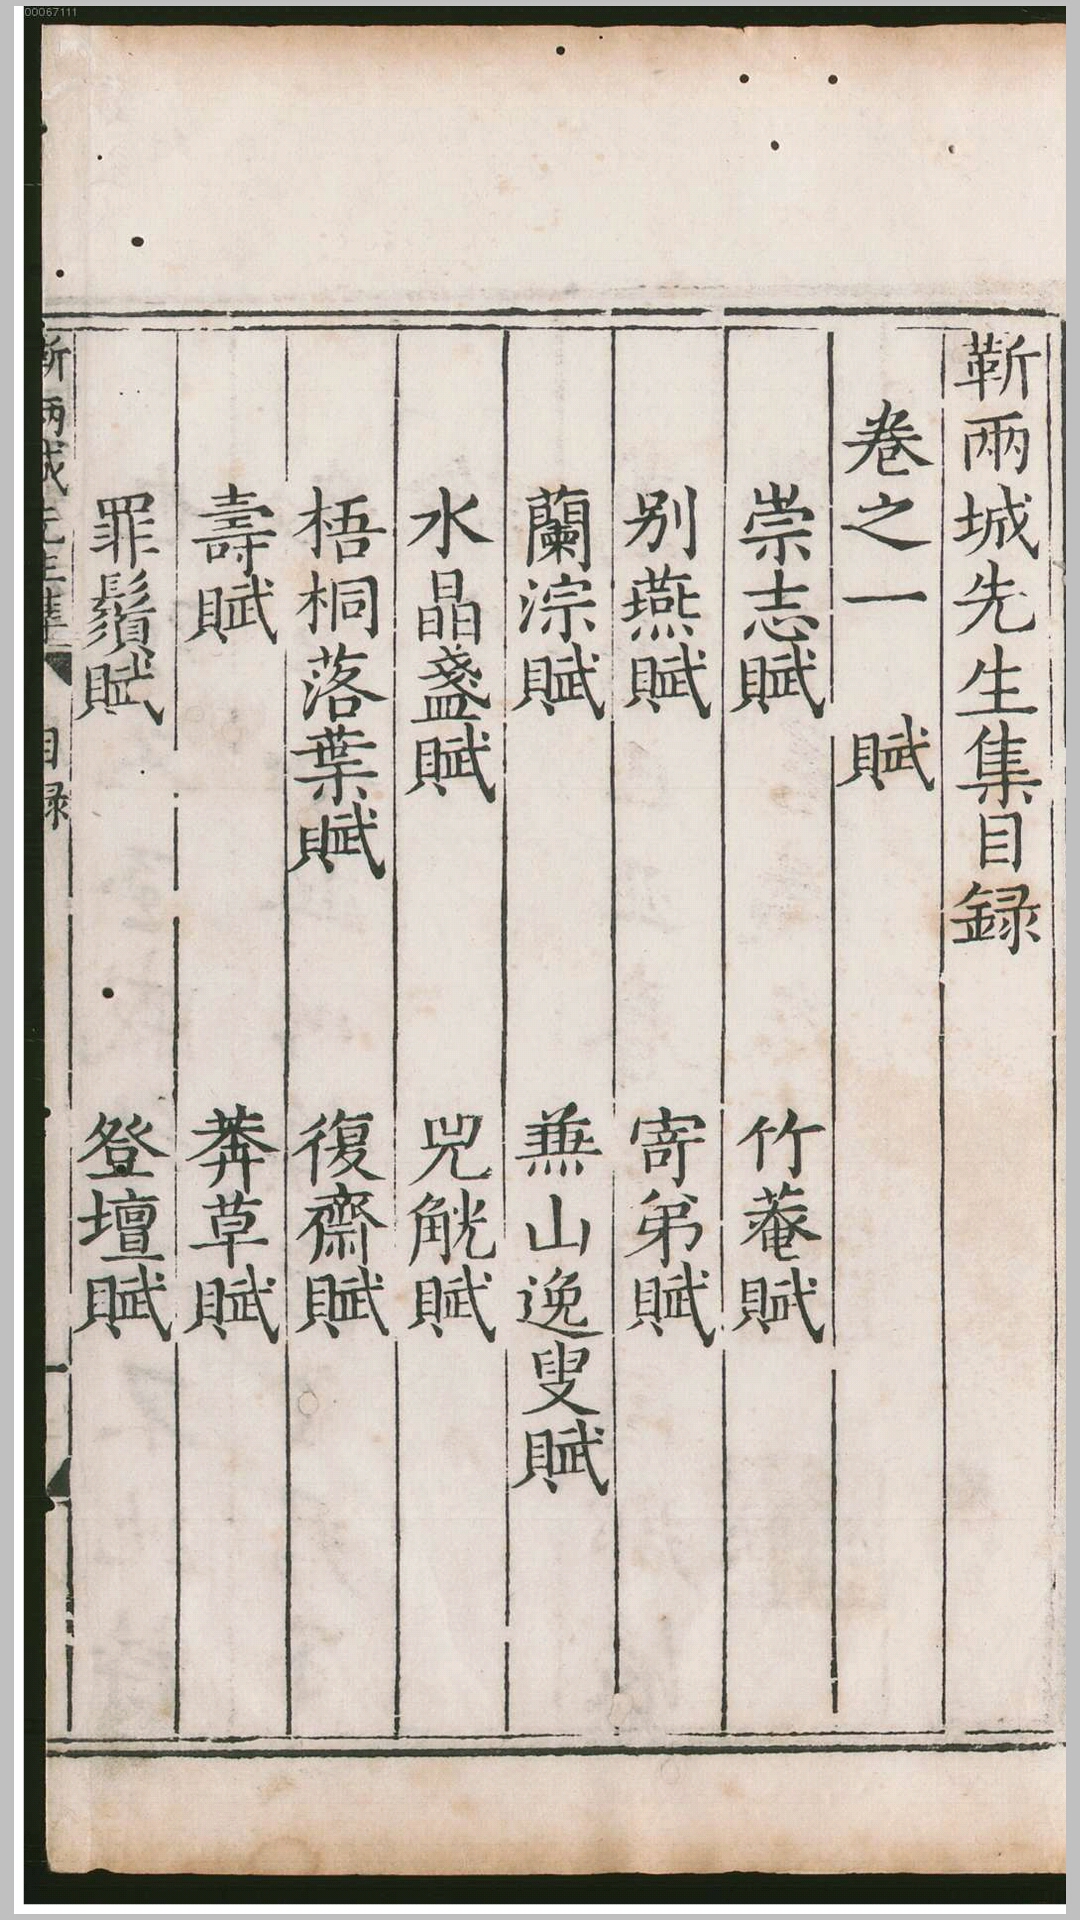 00067111
靳兩城先生集目録
卷之一　賦
崇志賦　竹菴賦
别燕賦　寄弟賦
蘭淙賦　蕪山逸叟賦
水晶盞賦　兕觥賦
梧桐落葉賦　復齋賦
壽賦　莾草賦
罪鬚賦　登壇賦
靳兩城先生集　目録　一